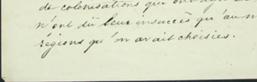 de colonisations qui ont
n'ont dû leur insuccès qu'au
régions qu'on avait choisies.